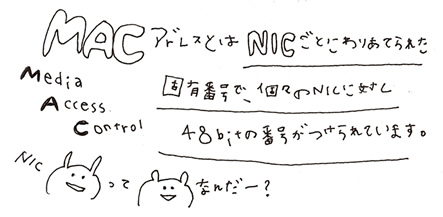 MACアドレスとはNICごとにわりあてられた
Media
Access
Control
固有番号で、個々のNICに対し
48bitの番号がつけられています。
NICってなんだー?